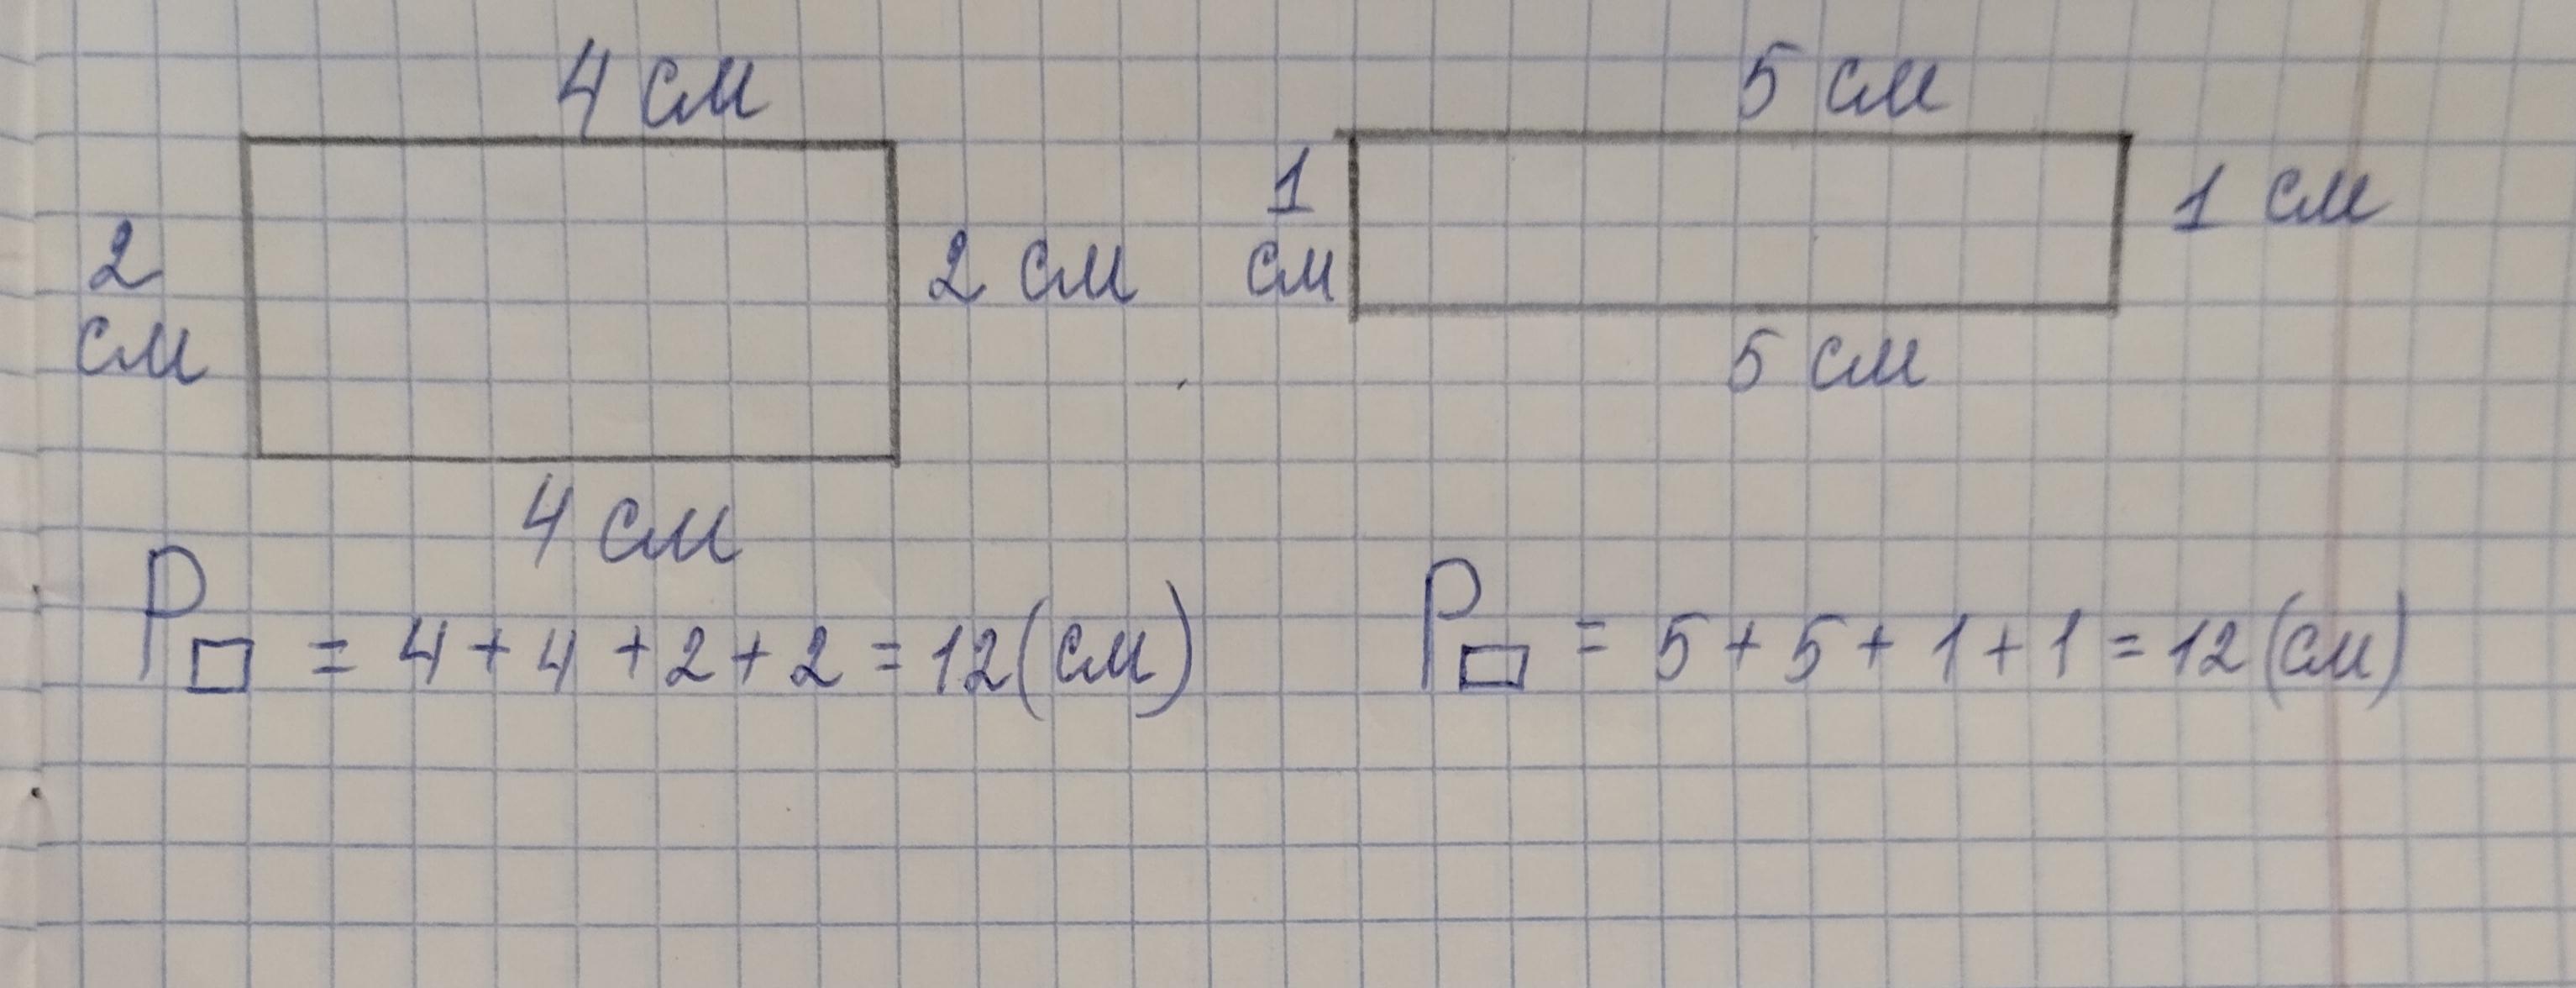 4 см
2
см
2 см
4 см
P□ = 4 + 4 + 2 + 2 = 12 (см)
5 см
1
см
1 см
5 см
P▭ = 5 + 5 + 1 + 1 = 12 (см)